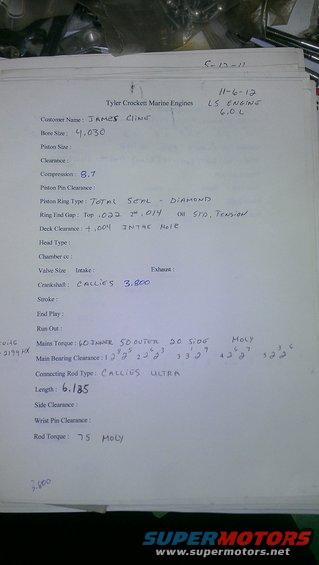 5-17-11
11-6-12
Tyler Crockett Marine Engines LS ENGINE
6.0L
Customer Name : JAMES CLINE
Bore Size : 4.030
Piston Size :
Clearance :
Compression : 8.7
Piston Pin Clearance :
Piston Ring Type : TOTAL SEAL - DIAMOND
Ring End Gap : Top .022 2nd .014 Oil STD. TENSION
Deck Clearance : +.004 IN THE HOLE
Head Type :
Chamber cc :
Valve Size Intake : Exhaust :
Crankshaft : CALLIES 3.800
Stroke :
End Play :
Run Out :
Mains Torque : 60 INNER 50 OUTER 20 SIDE MOLY
2199HX
Main Bearing Clearance :
Connecting Rod Type : CALLIES ULTRA
Length : 6.125
Side Clearance :
Wrist Pin Clearance :
Rod Torque : 75 MOLY
3.800
SUPERMOTORS
www.supermotors.net